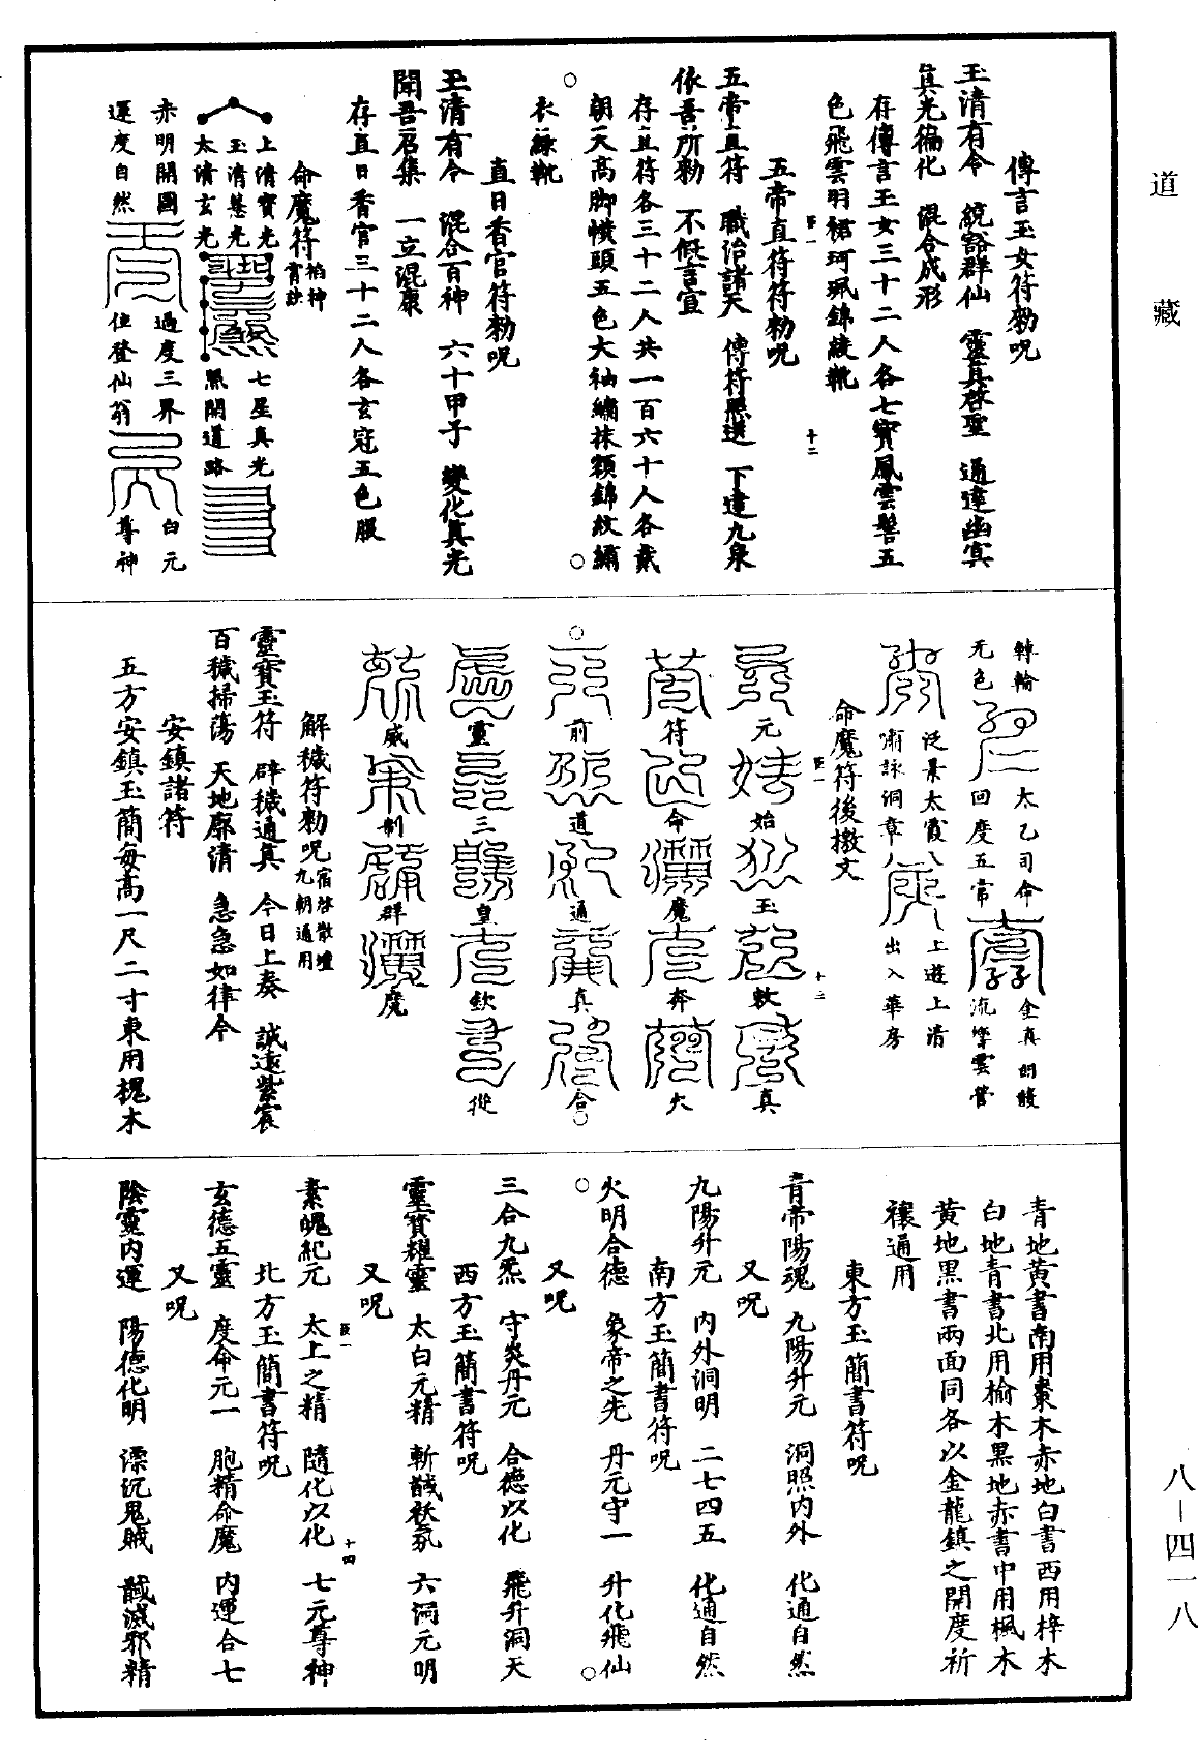 道藏
傳言玉女符勑呪
玉清有令　統豁群仙　靈真啓聖　通達幽冥
真光徧化　混合成形
存傳言玉女三十二人各七寳鳳雲髻五
色飛雲羽裙珂珮錦綾靴
五帝直符符勑呪
五帝直符　職治諸天　傳符照遣　下達九泉
依吾所勑　不低言宣
存直符各三十二人共一百六十人各戴
朝天高脚幞頭五色大袖繡抹額錦紋繡
衣緑靴
直日香官符勑呪
玉清有令　混合百神　六十甲子　變化真光
聞吾召集　一立混康
存直日香官三十二人各玄冠五色服
命魔符
上清寳光
玉清慧光
太清玄光
七星真光
照開道路
赤明開圖
運度自然
過度三界
位登仙翁
白元
尊神
轉輪
无色
太乙司命
回度五常
金真朗鬱
流響雲營
泛景太霞
嘯詠洞章
上遊上清
出入華房
命魔符後檄文
元始玉敕真
符命魔奔火
前道通真合
靈三皇欽從
威制群魔
解穢符勑呪宿啓散壇九朝通用
靈寳玉符　辟穢通真　今日上奏　誠達紫宸
百穢掃蕩　天地廓清　急急如律令
安鎮諸符
五方安鎮玉簡每高一尺二寸東用槐木
青地黄書南用棗木赤地白書西用梓木
白地青書北用榆木黒地赤書中用楓木
黄地黒書兩面同各以金龍鎮之開度祈
禳通用
東方玉簡書符呪
青帝陽魂　九陽升元　洞照内外　化通自然
又呪
九陽升元　内外洞明　二七四五　化通自然
南方玉簡書符呪
火明合德　象帝之先　丹元守一　升化飛仙
又呪
三合九炁　守炎丹元　合德以化　飛升洞天
西方玉簡書符呪
靈寳耀靈　太白元精　斬馘祅氛　六洞元明
又呪
素魄紀元　太上之精　隨化以化　七元尊神
北方玉簡書符呪
玄德五靈　度命元一　胞精命魔　内運合七
又呪
陰靈内運　陽德化明　漂沉鬼賊　馘滅邪精
八－四一八